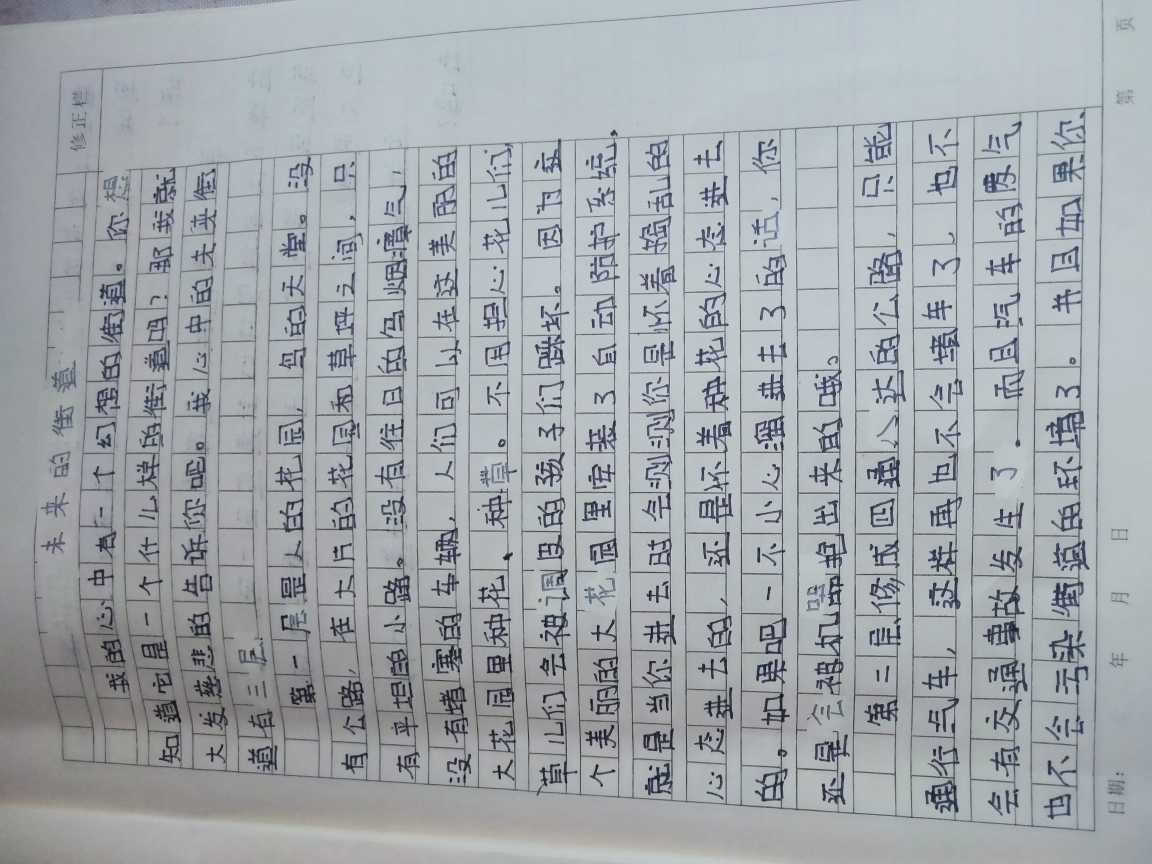 修正栏
未来的街道
我的心中有一个幻想的街道。你想
知道它是一个什么样的街道吗？那我就
大发慈悲的告诉你吧。我心中的未来街
道有三层
第一层是人的花园，鸟的天堂。没
有公路，在大片的花园和草坪之间，只
有平坦的小路。没有往日的乌烟瘴气，
没有堵塞的车辆，人们可以在这美丽的
大花园里种花、种草。不用担心花儿们
草儿们会被调皮的孩子们踩坏。因为这
个美丽的大花园里安装了自动防护系统，
就是当你进去时会测测你是怀着捣乱的
心态进去的，还是怀着种花的心态进去
的。如果吧一不小心溜进去了的话，你
还是会被机器抱出来的哦。
第二层修成四通八达的公路，只能
通行汽车，这样再也不会堵车了，也不
会有交通事故发生了。而且汽车的废气
也不会污染街道的环境了。书且如果你
日期： 年 月 日 第 页